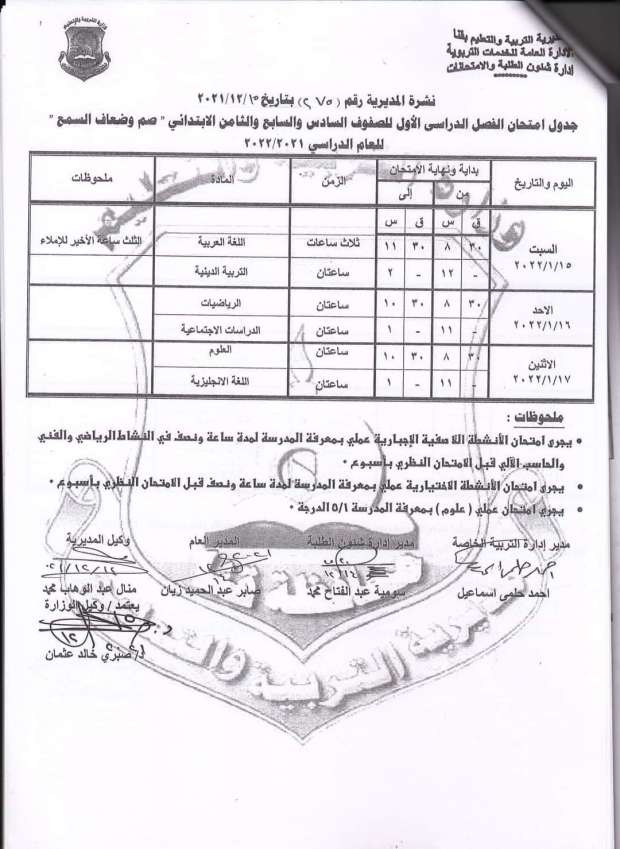 مديرية التربية والتعليم بقنا
الإدارة العامة للخدمات التربوية
إدارة شئون الطلبة والامتحانات
نشرة المديرية رقم (٢٧٥) بتاريخ ٢٠٢١/١٢/١٥
جدول امتحان الفصل الدراسى الأول للصفوف السادس والسابع والثامن الابتدائي " صم وضعاف السمع "
للعام الدراسي ٢٠٢٢/٢٠٢١
اليوم والتاريخ بداية ونهاية الامتحان الزمن المادة ملحوظات
من إلى
ق س ق س
السبت ٢٠٢٢/١/١٥ ٣٠ ٨ ٣٠ ١١ ثلاث ساعات اللغة العربية الثلث ساعة الأخير للإملاء
- ١٢ - ٢ ساعتان التربية الدينية
الاحد ٢٠٢٢/١/١٦ ٣٠ ٨ ٣٠ ١٠ ساعتان الرياضيات
- ١١ - ١ ساعتان الدراسات الاجتماعية
الاثنين ٢٠٢٢/١/١٧ ٣٠ ٨ ٣٠ ١٠ ساعتان العلوم
- ١١ - ١ ساعتان اللغة الانجليزية
ملحوظات :
• يجرى امتحان الأنشطة اللاصفية الإجبارية عملي بمعرفة المدرسة لمدة ساعة ونصف في النشاط الرياضي والفني
والحاسب الآلي قبل الامتحان النظري بأسبوع .
• يجرى امتحان الأنشطة الاختيارية عملي بمعرفة المدرسة لمدة ساعة ونصف قبل الامتحان النظري بأسبوع .
• يجرى امتحان عملي ( علوم ) بمعرفة المدرسة ٥/١ الدرجة .
مدير إدارة التربية الخاصة مدير إدارة شئون الطلبة المدير العام وكيل المديرية
احمد حلمى اسماعيل سومية عبد الفتاح محمد صابر عبد الحميد زيان منال عبد الوهاب محمد
يعتمد / وكيل الوزارة
د/ صبري خالد عثمان
مديرية التربية والتعليم